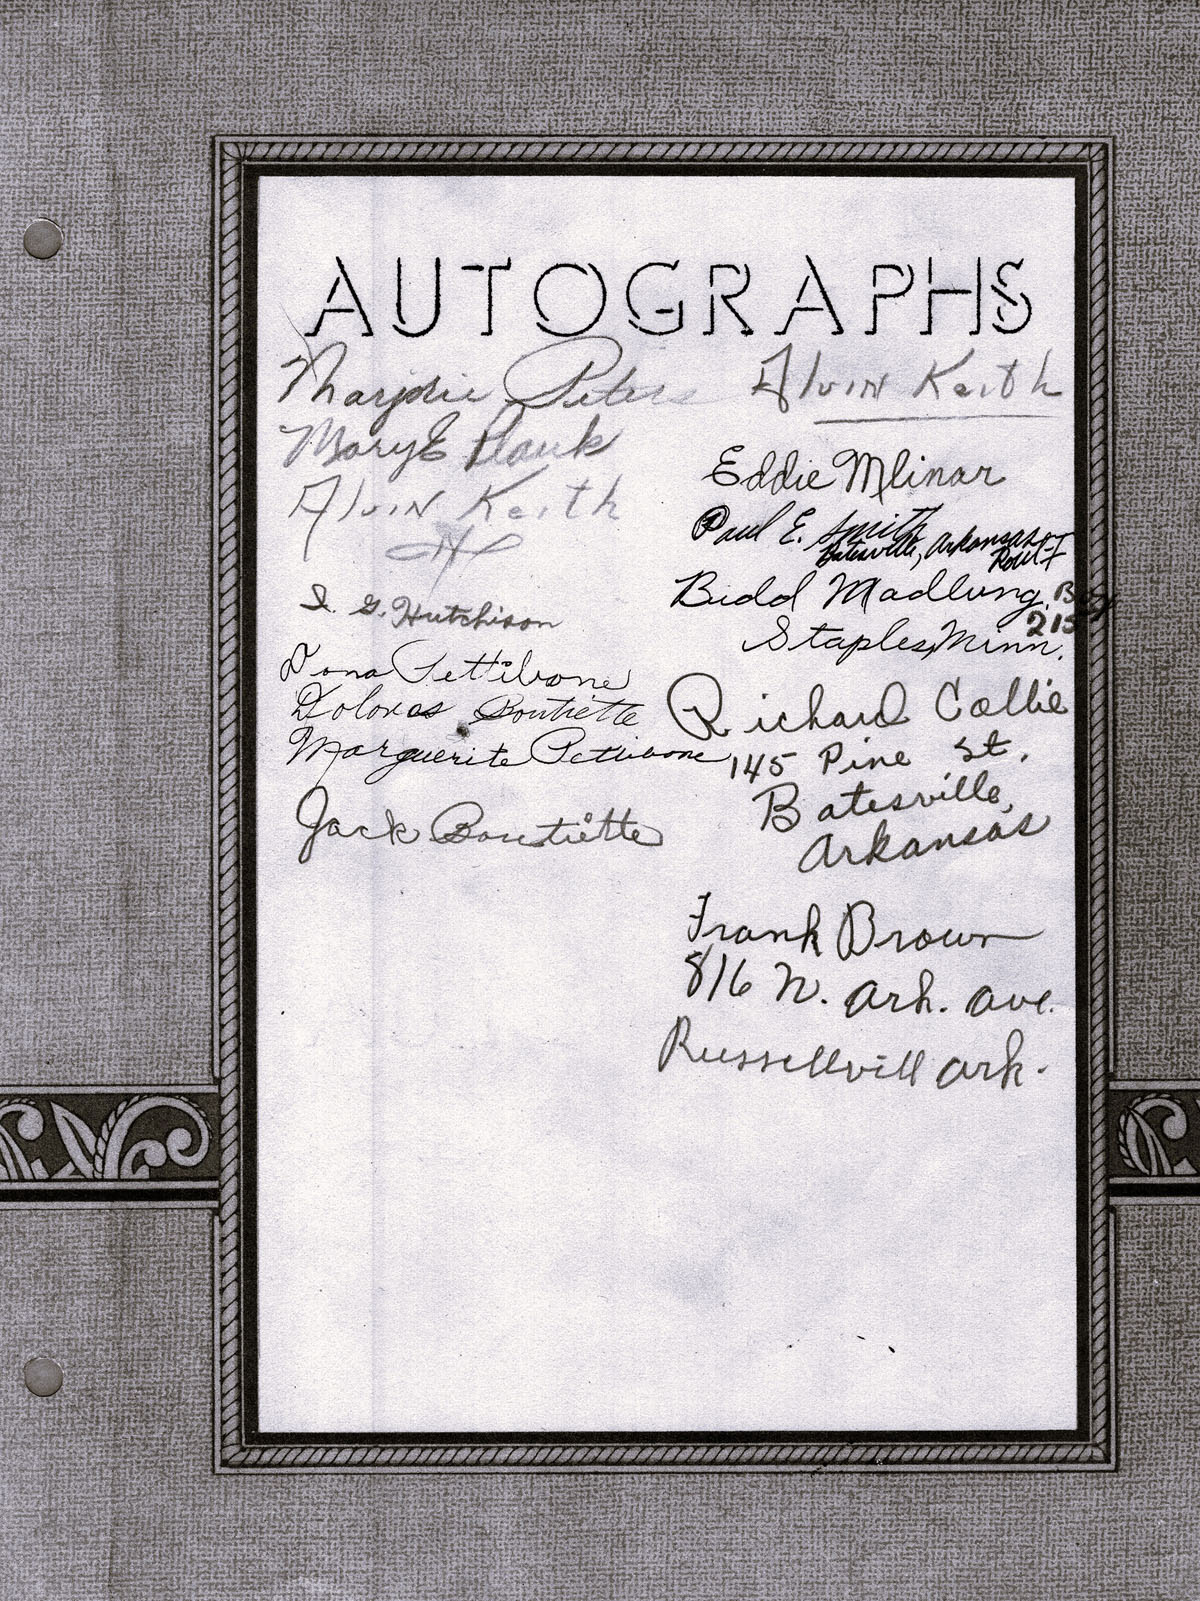 AUTOGRAPHS
Marjorie Peters
Mary E Hauk
Alvin Keith
I. G. Hutchison
Dona Pettibone
Dolores Boutiette
Marguerite Pettibone
Jack Boutiette
Alvin Keith
Eddie Mlinar
Paul E. Smith
Batesville, Arkansas
Rout-I
Budd Madlung. Box
215
Staples, Minn.
Richard Collie
145 Pine St.
Batesville,
Arkansas
Frank Brown
816 N. Ark. Ave.
Russellvill Ark.